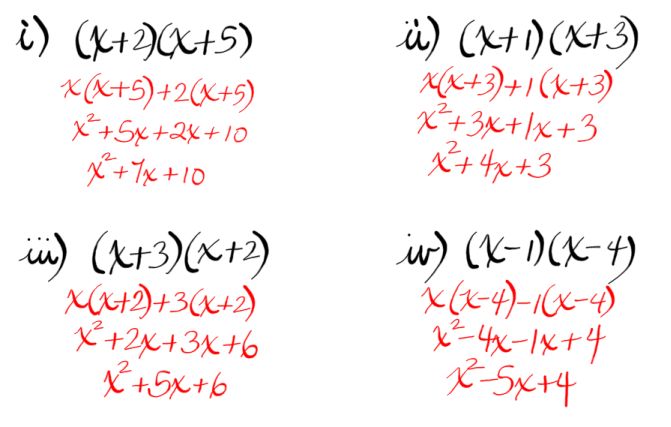 i) (x+2)(x+5)
x(x+5)+2(x+5)
x²+5x+2x+10
x²+7x+10
ii) (x+1)(x+3)
x(x+3)+1(x+3)
x²+3x+1x+3
x²+4x+3
iii) (x+3)(x+2)
x(x+2)+3(x+2)
x²+2x+3x+6
x²+5x+6
iv) (x-1)(x-4)
x(x-4)-1(x-4)
x²-4x-1x+4
x²-5x+4